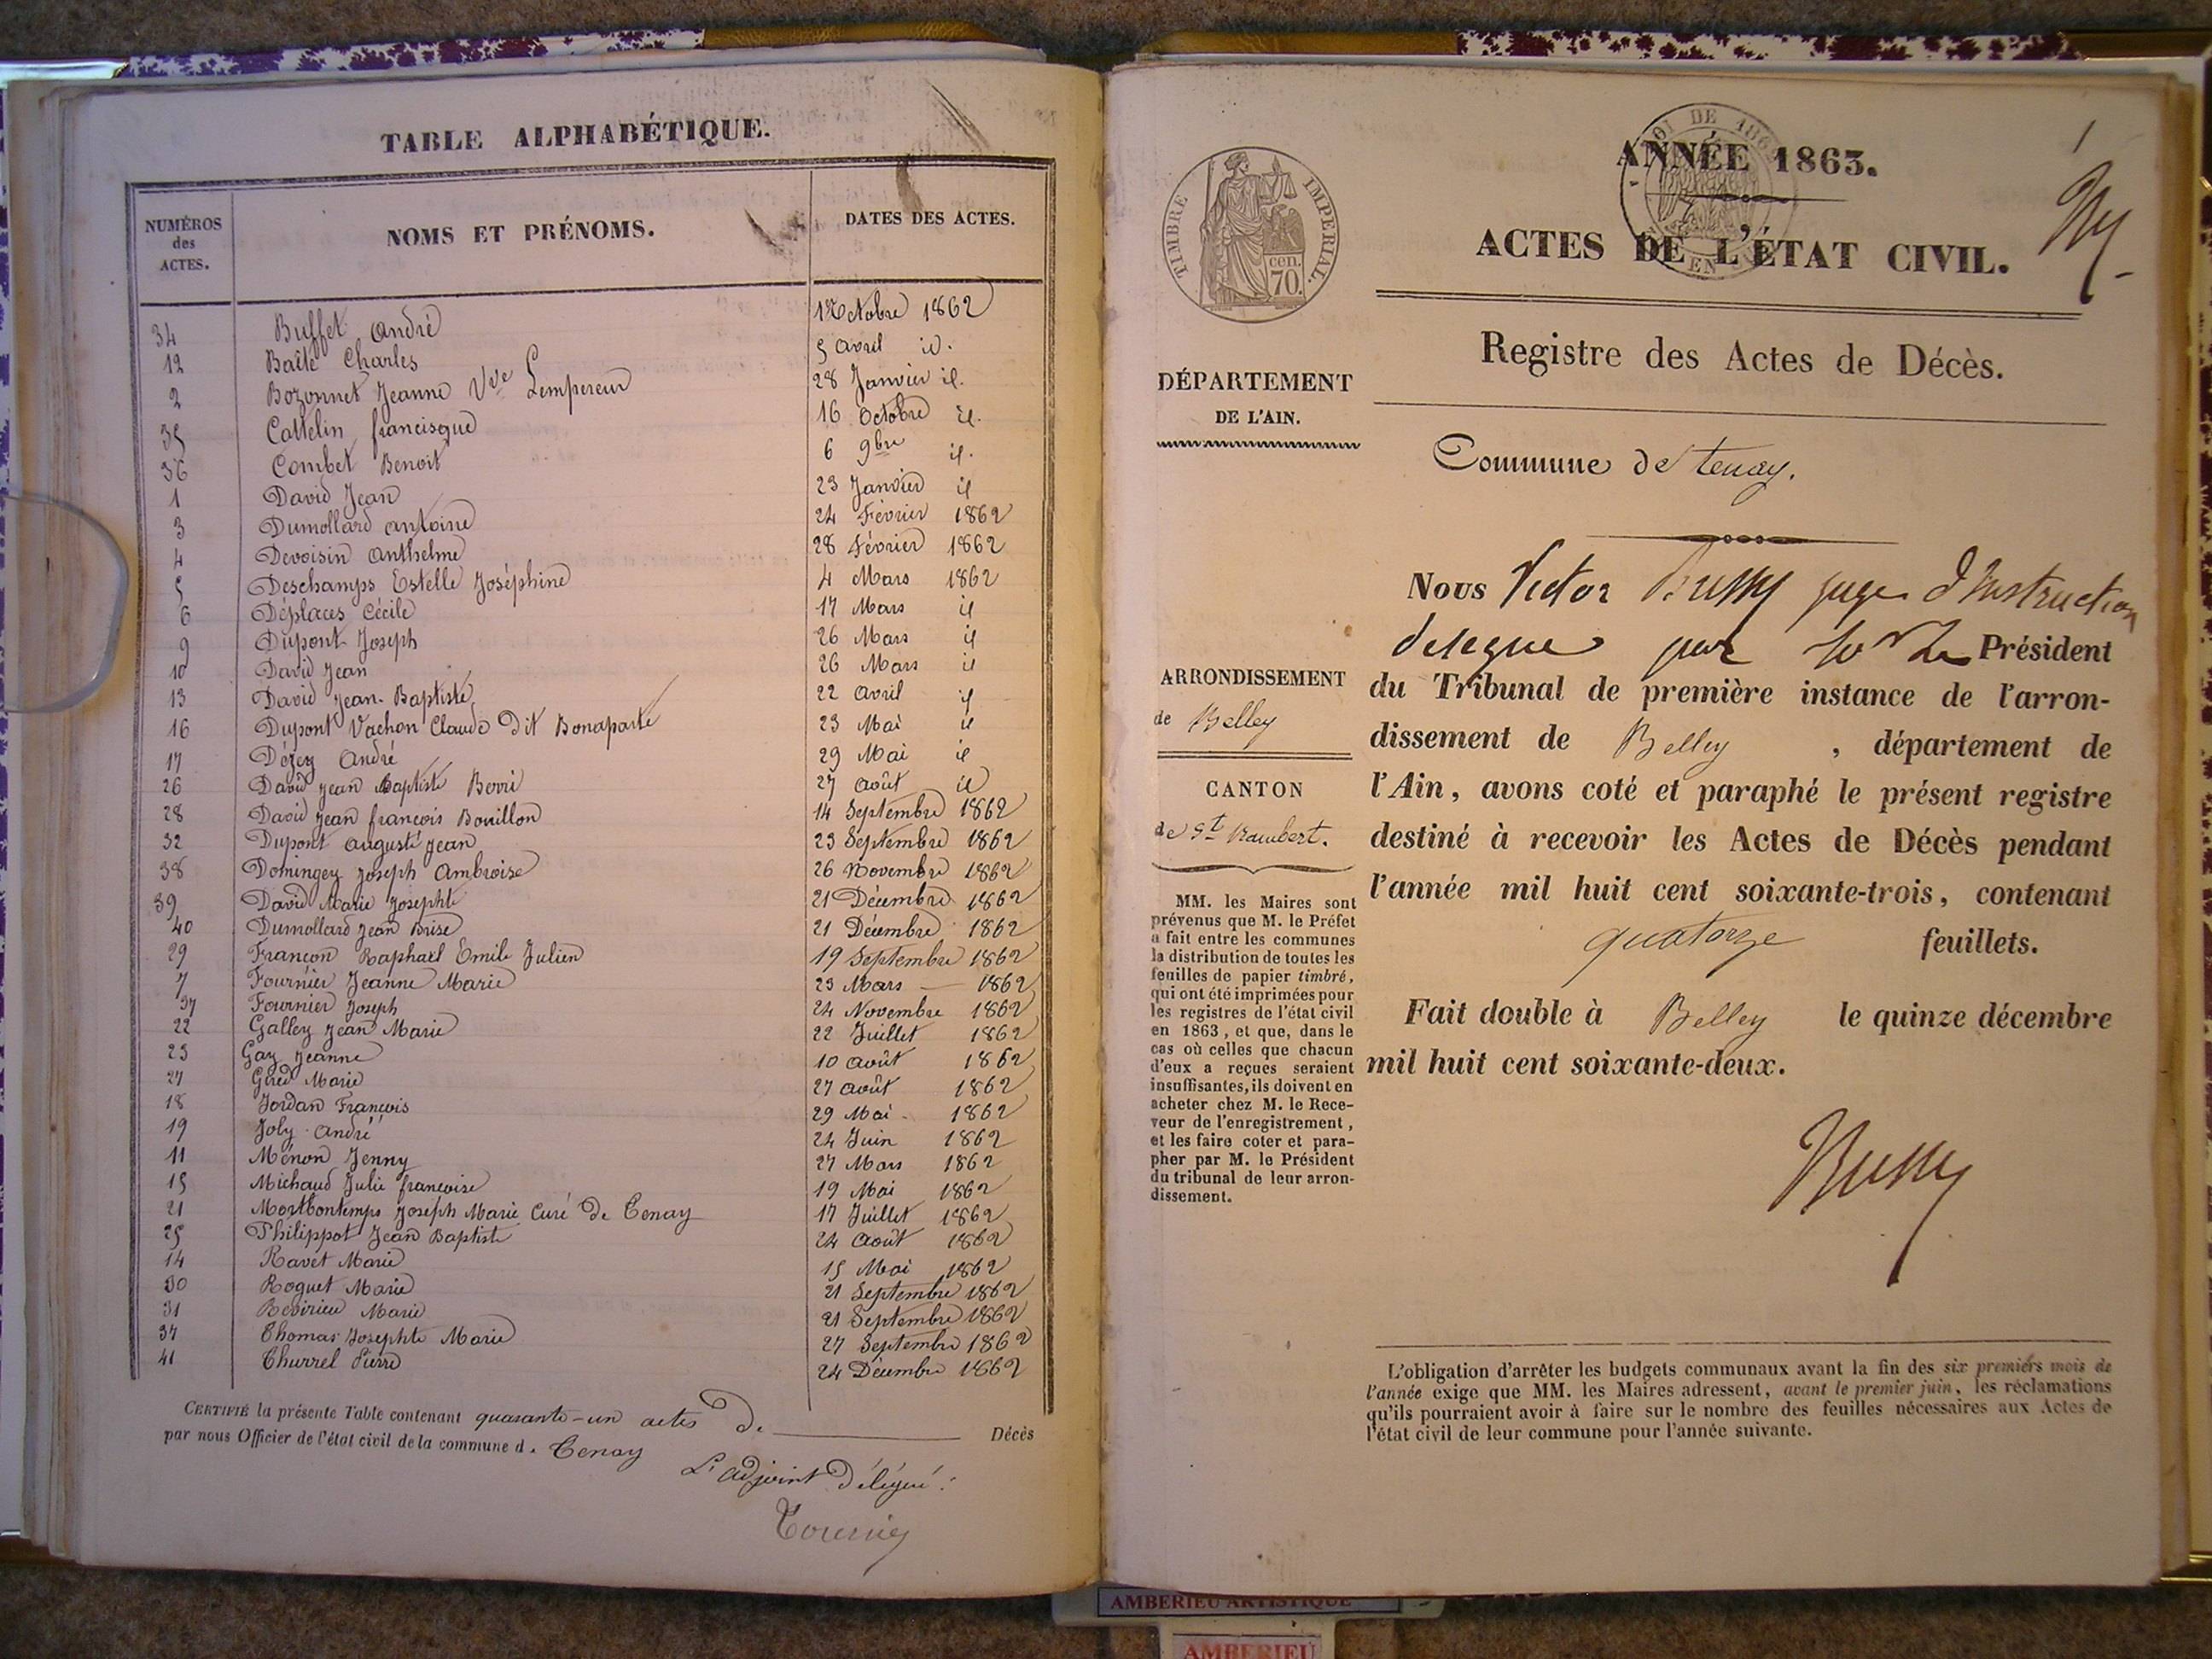 TABLE ALPHABÉTIQUE.
NUMÉROS des ACTES. NOMS ET PRÉNOMS. DATES DES ACTES.
34 Buffet André 1er Octobre 1862
12 Baîte Charles 5 avril id.
2 Bozonnet Jeanne Vve Lempereur 28 Janvier id.
35 Cattelin francisque 16 Octobre id.
36 Combet Benoit 6 9bre id.
1 David Jean 23 Janvier id
3 Dumollard antoine 24 Février 1862
4 Devoisin Anthelme 28 Février 1862
5 Deschamps Estelle Joséphine 4 Mars 1862
6 Déplaces Cécile 17 Mars id
9 Dupont Joseph 26 Mars id
10 David Jean 26 Mars id
13 David Jean-Baptiste 22 avril id
16 Dupont Vachon Claude dit Bonaparte 23 Mai id
17 Dézey André 29 Mai id
26 David Jean Baptiste 27 août id
28 David Jean françois Bouillon 14 Septembre 1862
32 Dupont auguste Jean 23 Septembre 1862
38 Domingey Joseph Ambroise 26 Novembre 1862
39 David Marie Josephte 21 Décembre 1862
40 Dumollard Jean Brise 21 Décembre 1862
29 Françon Raphaël Emile Julien 19 Septembre 1862
7 Fournier Jeanne Marie 23 Mars — 1862
37 Fournier Joseph 24 Novembre 1862
22 Galley Jean Marie 22 Juillet 1862
23 Gay Jeanne 10 août 1862
27 Marie 27 août 1862
18 Jordan François 29 Mai 1862
19 Joly André 24 Juin 1862
11 Ménon Jenny 27 Mars 1862
15 Michaud Julie françoise 19 Mai 1862
21 Montbontemps Joseph Marie Curé de Tenay 17 Juillet 1862
25 Philippot Jean Baptiste 24 Août 1862
14 Ravet Marie 15 Mai 1862
30 Roguet Marie 21 Septembre 1862
31 Revirieu Marie 21 Septembre 1862
37 Thomas Josephte Marie 27 Septembre 1862
41 Churrel Pierre 24 Décembre 1862
CERTIFIÉ la présente Table contenant quarante-un actes De Décès
par nous Officier de l'état civil de la commune d. Tenay
L'adjoint Délégué :
TIMBRE IMPERIAL.
cen.
70.
ANNÉE 1863.
ACTES DE L'ÉTAT CIVIL.
Registre des Actes de Décès.
DÉPARTEMENT
DE L'AIN.
Commune de tenay.
ARRONDISSEMENT
de Belley
CANTON
de St Rambert.
MM. les Maires sont
prévenus que M. le Préfet
a fait entre les communes
la distribution de toutes les
feuilles de papier timbré,
qui ont été imprimées pour
les registres de l'état civil
en 1863, et que, dans le
cas où celles que chacun
d'eux a reçues seraient
insuffisantes, ils doivent en
acheter chez M. le Rece-
veur de l'enregistrement,
et les faire coter et para-
pher par M. le Président
du tribunal de leur arron-
dissement.
Nous Victor Bussy juge d'Instruction
delegue par Mr Le Président
du Tribunal de première instance de l'arron-
dissement de Belley, département de
l'Ain, avons coté et paraphé le présent registre
destiné à recevoir les Actes de Décès pendant
l'année mil huit cent soixante-trois, contenant
quatorze feuillets.
Fait double à Belley le quinze décembre
mil huit cent soixante-deux.
Bussy
L'obligation d'arrêter les budgets communaux avant la fin des six premiers mois de
l'année exige que MM. les Maires adressent, avant le premier juin, les réclamations
qu'ils pourraient avoir à faire sur le nombre des feuilles nécessaires aux Actes de
l'état civil de leur commune pour l'année suivante.
AMBERIEU ARTISTIQUE
AMBERIEU